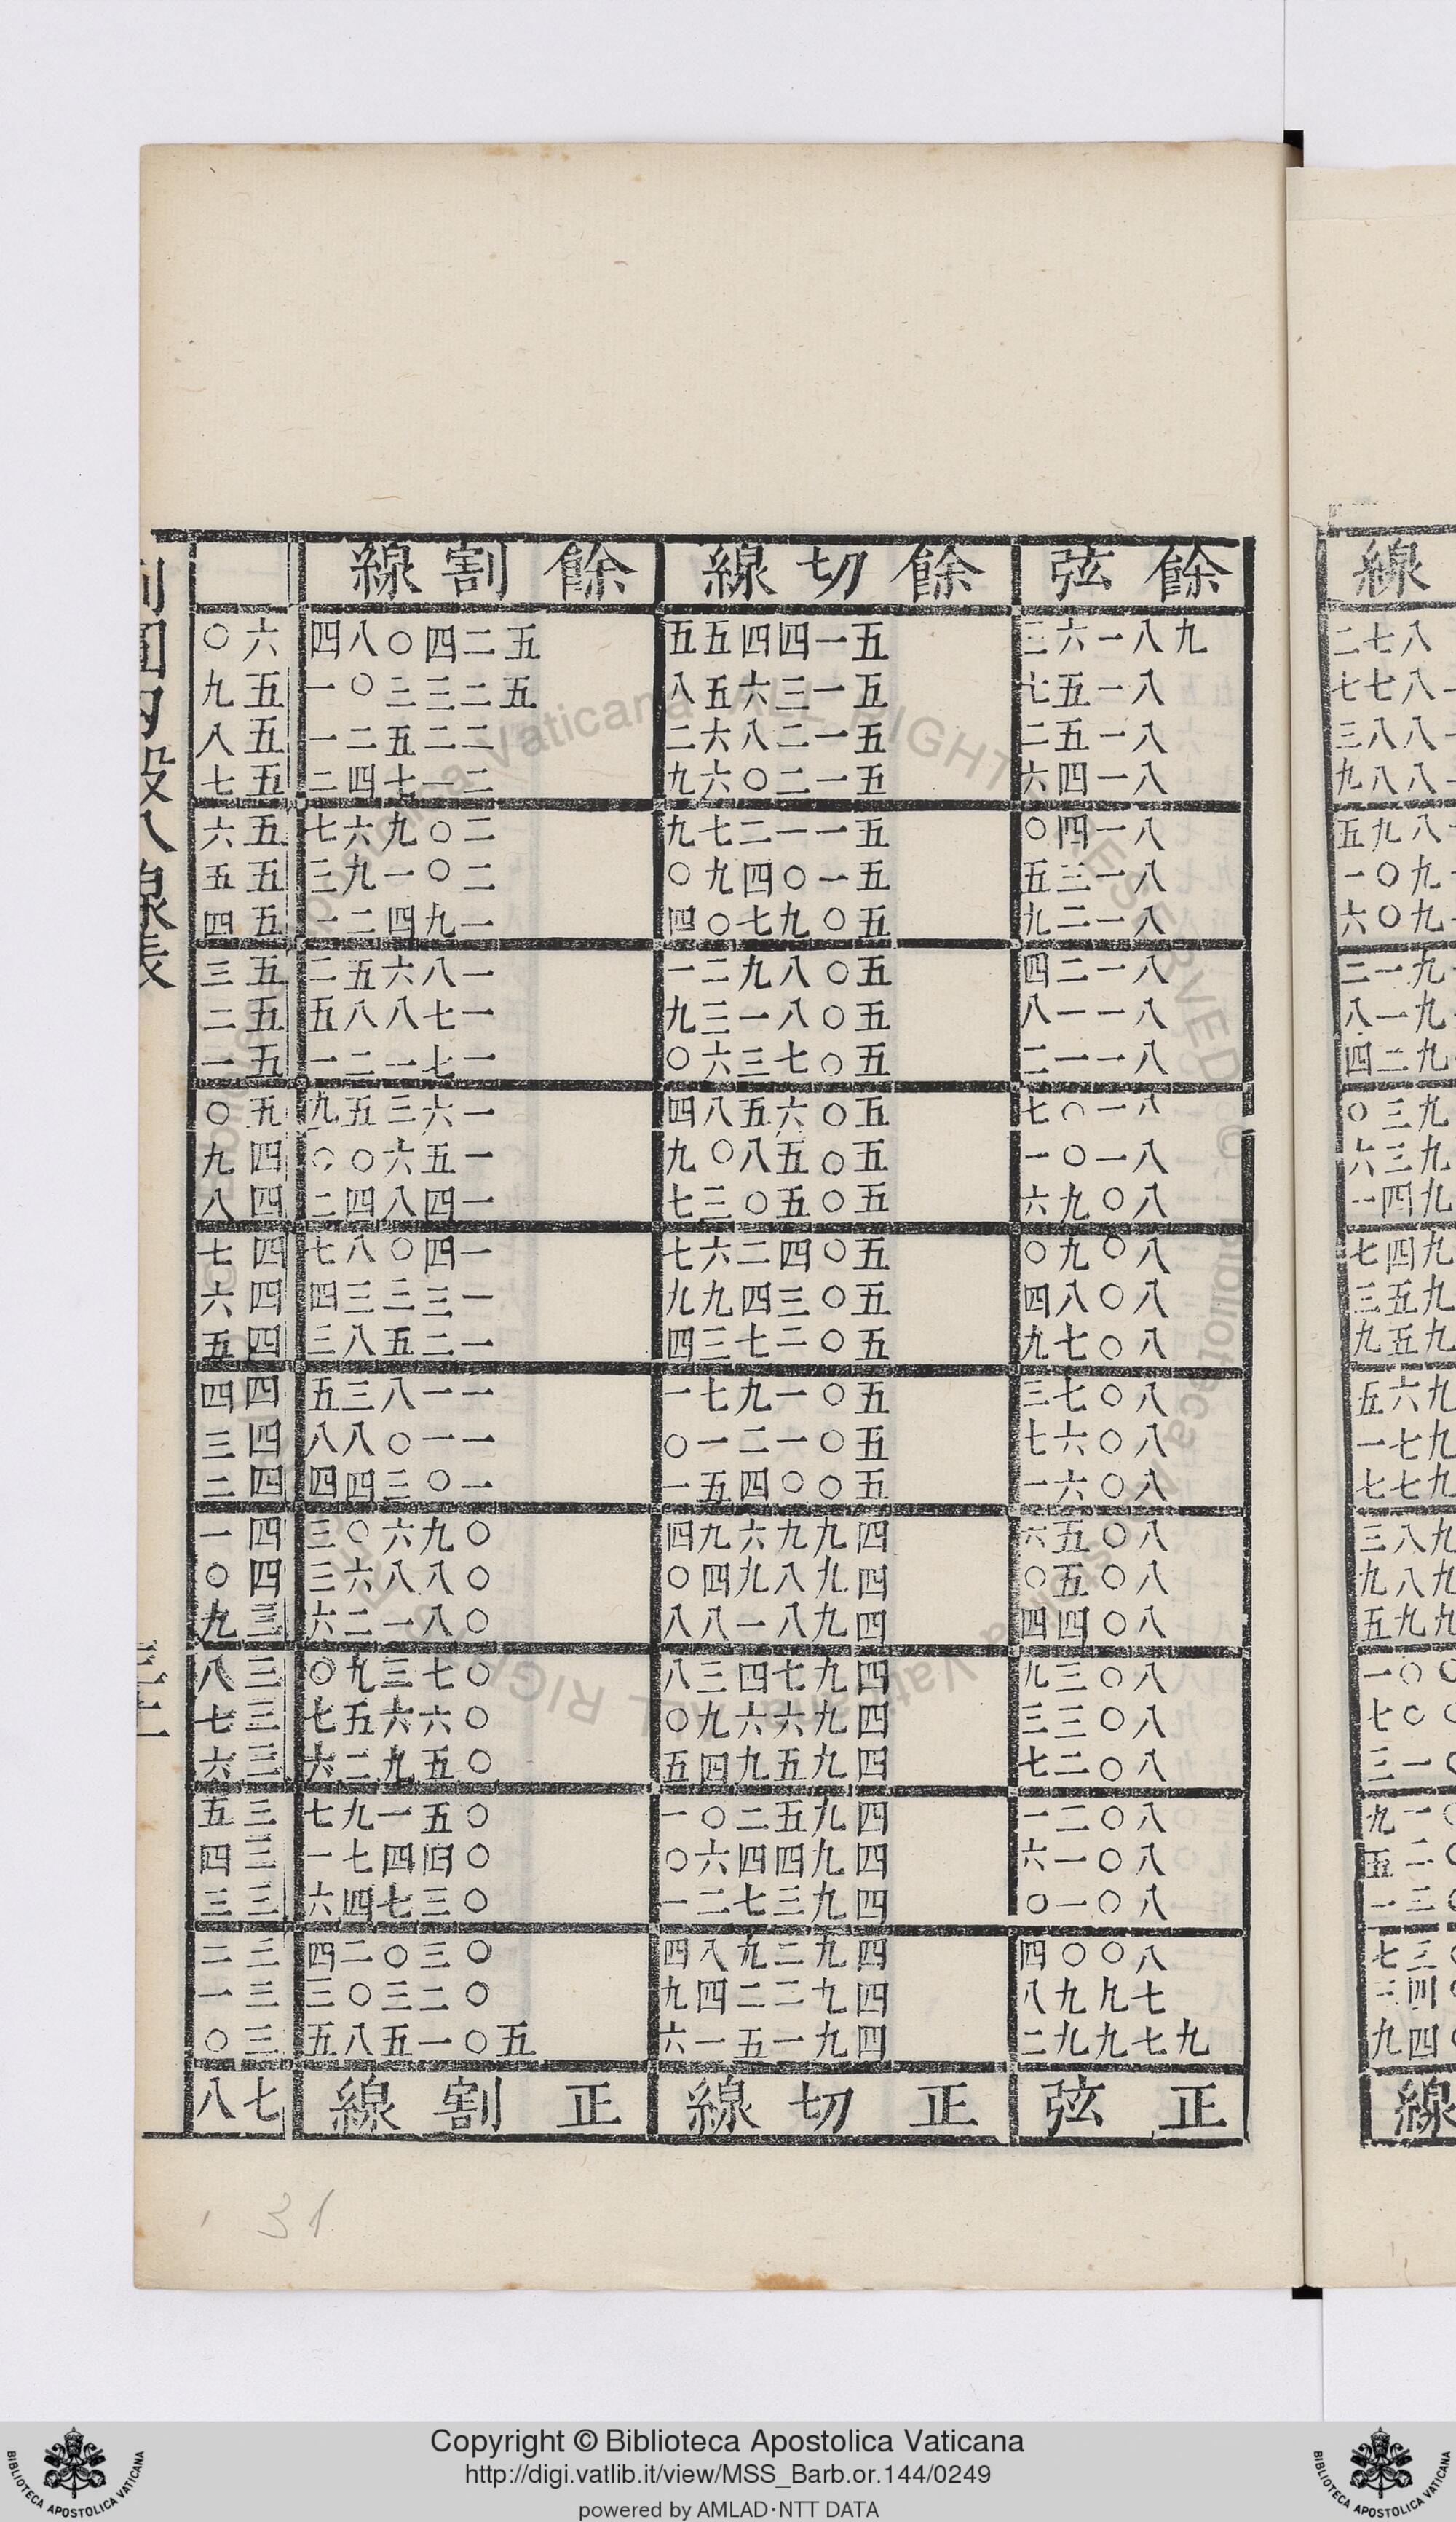 餘弦 餘切線 餘割線
九八一六三 五一四四五五 五二四〇八四 六〇
八一五七 五一三六五八 五二三三〇一 五九
八一五二 五一二八六二 二二五二一 五八
八一四六 五一二〇六九 二一七四二 五七
八一四〇 五一一二七九 二〇九六七 五六
八一三五 五一〇四九〇 二〇一九三 五五
八一二九 五〇九七〇四 一九四二一 五四
八一二四 五〇八九二一 一八六五二 五三
八一一八 五〇八一三九 一七八八五 五二
八一一二 五〇七三六〇 一七一二一 五一
八一〇七 五〇六五八四 一六三五九 五〇
八一〇一 五〇五八〇九 一五六〇〇 四九
八〇九六 五〇五〇三七 一四八四二 四八
八〇九〇 五〇四二六七 一四〇八七 四七
八〇八四 五〇三四九九 一三三三四 四六
八〇七九 五〇二七三四 一二五八三 四五
八〇七三 五〇一九七一 一一八三五 四四
八〇六七 五〇一二一〇 一一〇八八 四三
八〇六一 五〇〇四五一 一〇三四四 四二
八〇五六 四九九六九四 〇九六〇三 四一
八〇五〇 四九八九四〇 〇八八六三 四〇
八〇四四 四九八一八八 〇八一二六 三九
八〇三九 四九七四三八 〇七三九〇 三八
八〇三三 四九六六九〇 〇六六五七 三七
八〇二七 四九五九四五 〇五九二六 三六
八〇二一 四九五二〇一 〇五一九七 三五
八〇一六 四九四四六〇 〇四四七一 三四
八〇一〇 四九三七二一 〇三七四六 三三
八〇〇四 四九二九八四 〇三〇二四 三二
七九九八 四九二二四九 〇二三〇三 三一
九七九九二 四九一五一六 五〇一五八五 三〇
正弦 正切線 正割線 七八
31
Copyright © Biblioteca Apostolica Vaticana
http://digi.vatlib.it/view/MSS_Barb.or.144/0249
powered by AMLAD·NTT DATA
BIBLIOTECA APOSTOLICA VATICANA
BIBLIOTECA APOSTOLICA VATICANA